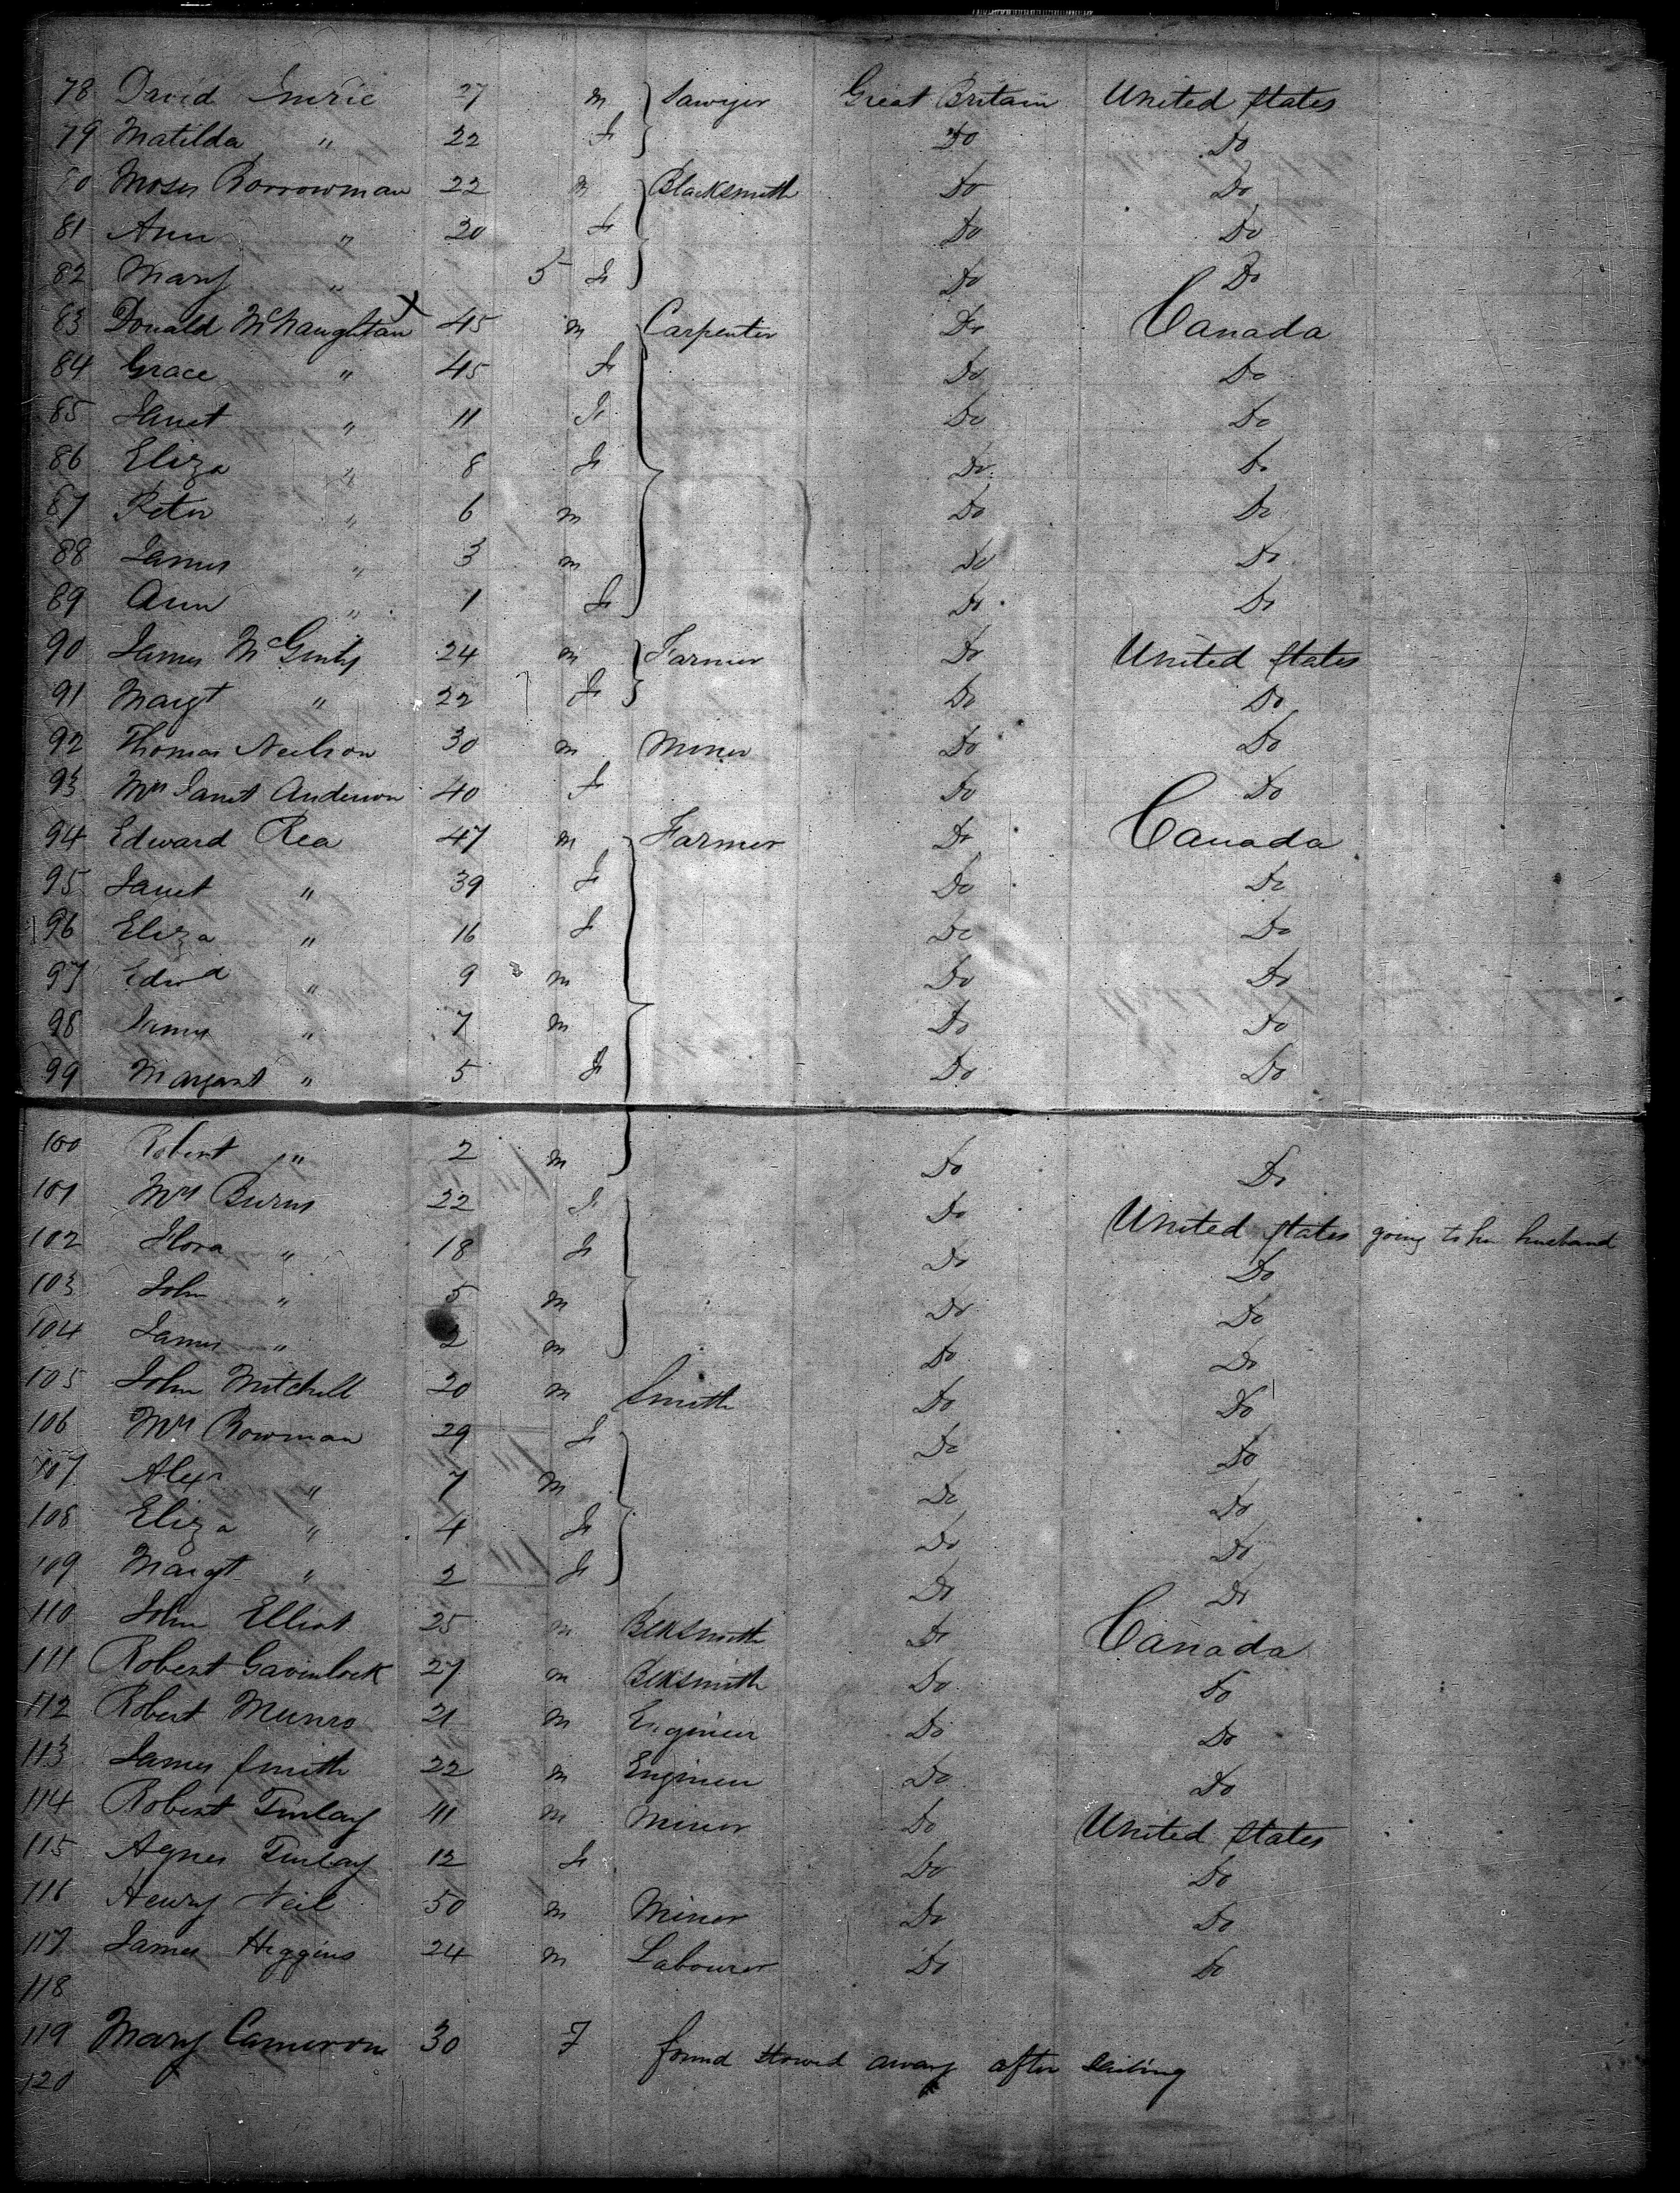 78 David Imrie 27 m Sawyer Great Britain United States
79 Matilda " 22 f Do Do
80 Moses Borrowman 22 m Blacksmith Do Do
81 Ann " 20 f Do Do
82 Mary " 5 f Do Do
83 Donald McNaughtan X 45 m Carpenter Do Canada
84 Grace " 45 f Do Do
85 Janet " 11 f Do Do
86 Eliza " 8 f Do Do
87 Peter " 6 m Do Do
88 James " 3 m Do Do
89 Ann " 1 f Do Do
90 James McGinty 24 m Farmer Do United States
91 Margt " 22 f Do Do
92 Thomas Neilson 30 m Miner Do Do
93 Mrs Janet Anderson 40 f Do Do
94 Edward Rea 47 m Farmer Do Canada
95 Janet " 39 f Do Do
96 Eliza " 16 f Do Do
97 Edwd " 9 m Do Do
98 James " 7 m Do Do
99 Margaret " 5 f Do Do
100 Robert " 2 m Do Do
101 Mrs Burns 22 f Do United States going to her husband
102 Flora " 18 f Do Do
103 John " 5 m Do Do
104 James " 2 m Do Do
105 John Mitchell 20 m Smith Do Do
106 Mrs Bowman 29 f Do Do
107 Alexr " 7 m Do Do
108 Eliza " 4 f Do Do
109 Margt " 2 f Do Do
110 John Elliot 25 m Blksmith Do Canada
111 Robert Gavinlock 27 m Blksmith Do Do
112 Robert Munro 21 m Engineer Do Do
113 James Smith 22 m Engineer Do Do
114 Robert Finlay 41 m Miner Do United States
115 Agnes Finlay 12 f Do Do
116 Henry Neil 50 m Miner Do Do
117 James Higgins 24 m Labourer Do Do
118
119 Mary Cameron 30 F found stowed away after sailing
120